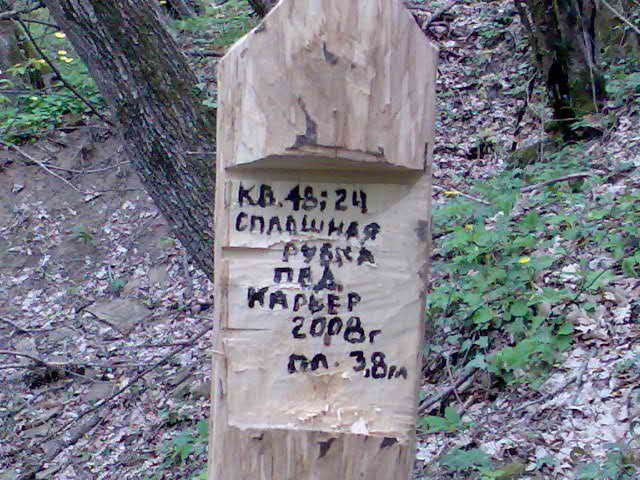 КВ. 48; 24
СПЛОШНАЯ
РУБКА
ПОД
КАРЬЕР
2008г
пл. 3,8га